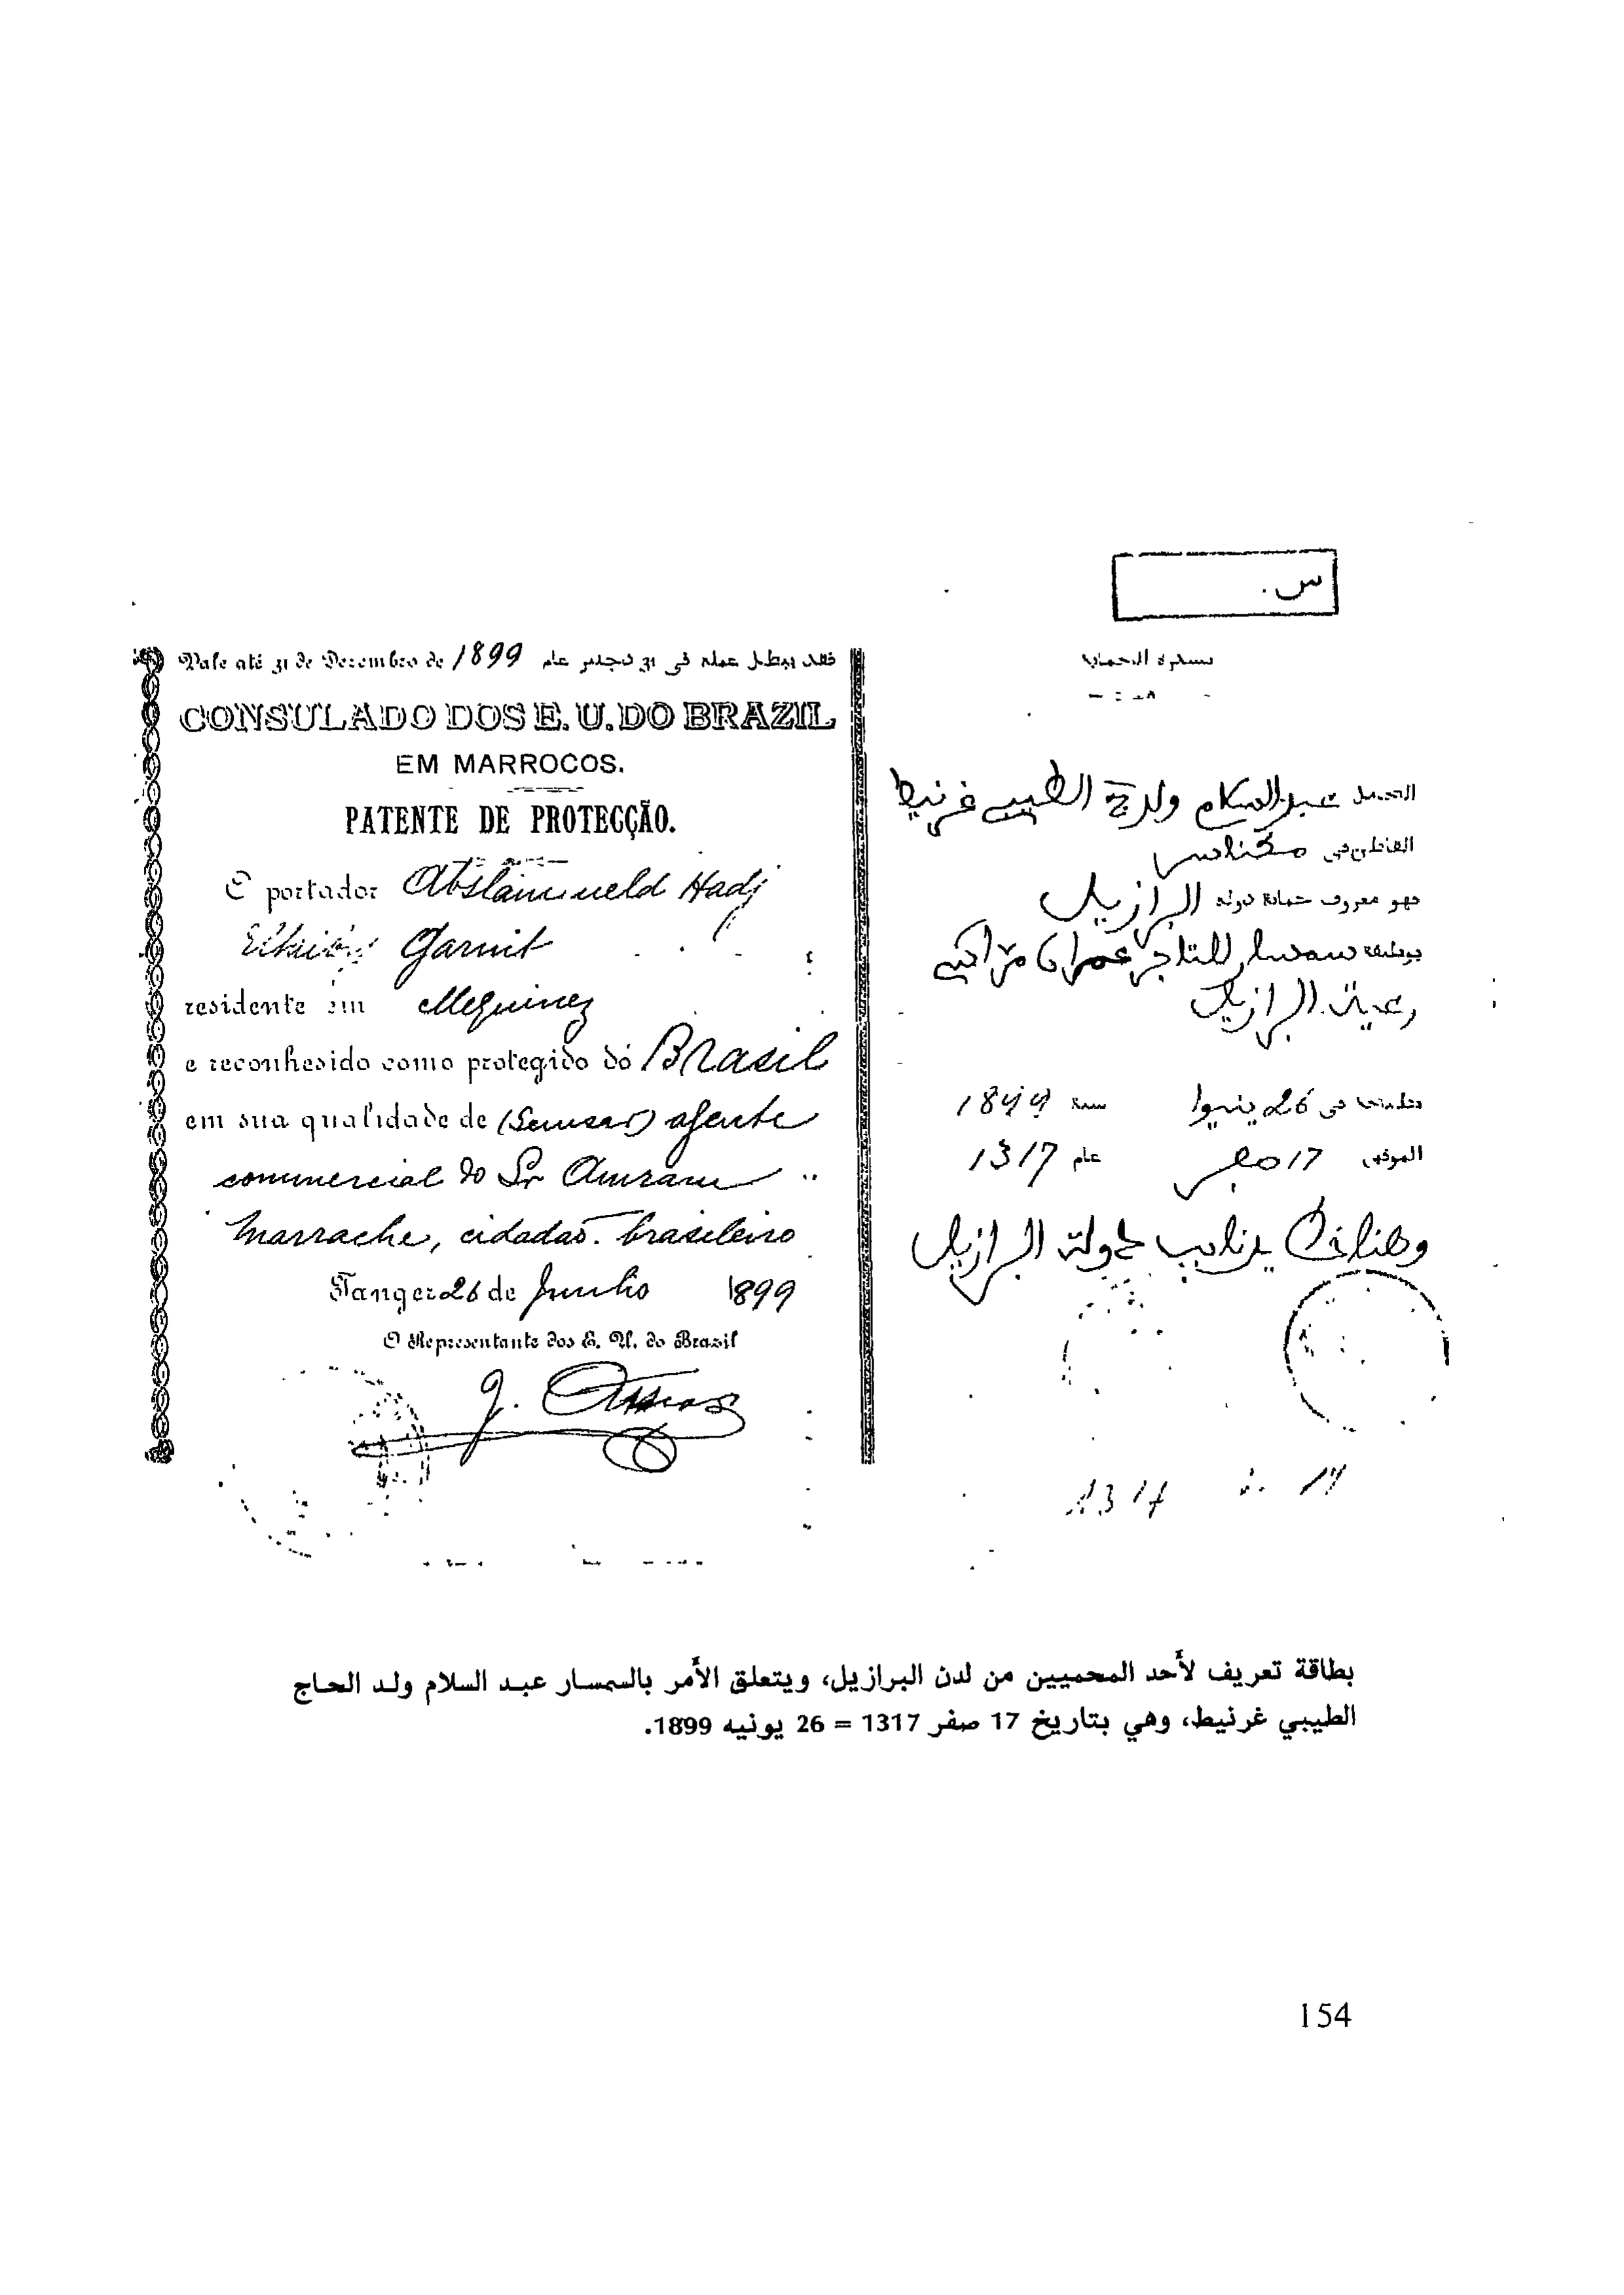 س.
Vale até 31 de Dezembro de 1899 فقد يبطل عمله في 31 دجنبر عام
CONSULADO DOS E. U. DO BRAZIL
EM MARROCOS.
PATENTE DE PROTECÇÃO.
O portador Abslam ueld Hadj
Garnit
residente em Mequinez
e reconhesido como protegido do Brasil
em sua qualidade de (Semsar) agente
commercial do Sr Amram
Marrache, cidadão brasileiro
Tanger 26 de Junho 1899
O Representante dos E. U. do Brazil
الحماية
عبد السلام ولد الطيبي غرنيط
القاطن في مكناس
فهو معروف حماية دولة البرازيل
بوظيفة سمسار للتاجر عمران مراكشي
رعية البرازيل
في 26 ينيوا سنة 1899
الموفق 17 صفر عام 1317
لدولة البرازيل
بطاقة تعريف لأحد المحميين من لدن البرازيل، ويتعلق الأمر بالسمسار عبد السلام ولد الحاج
الطيبي غرنيط، وهي بتاريخ 17 صفر 1317 = 26 يونيه 1899.
154